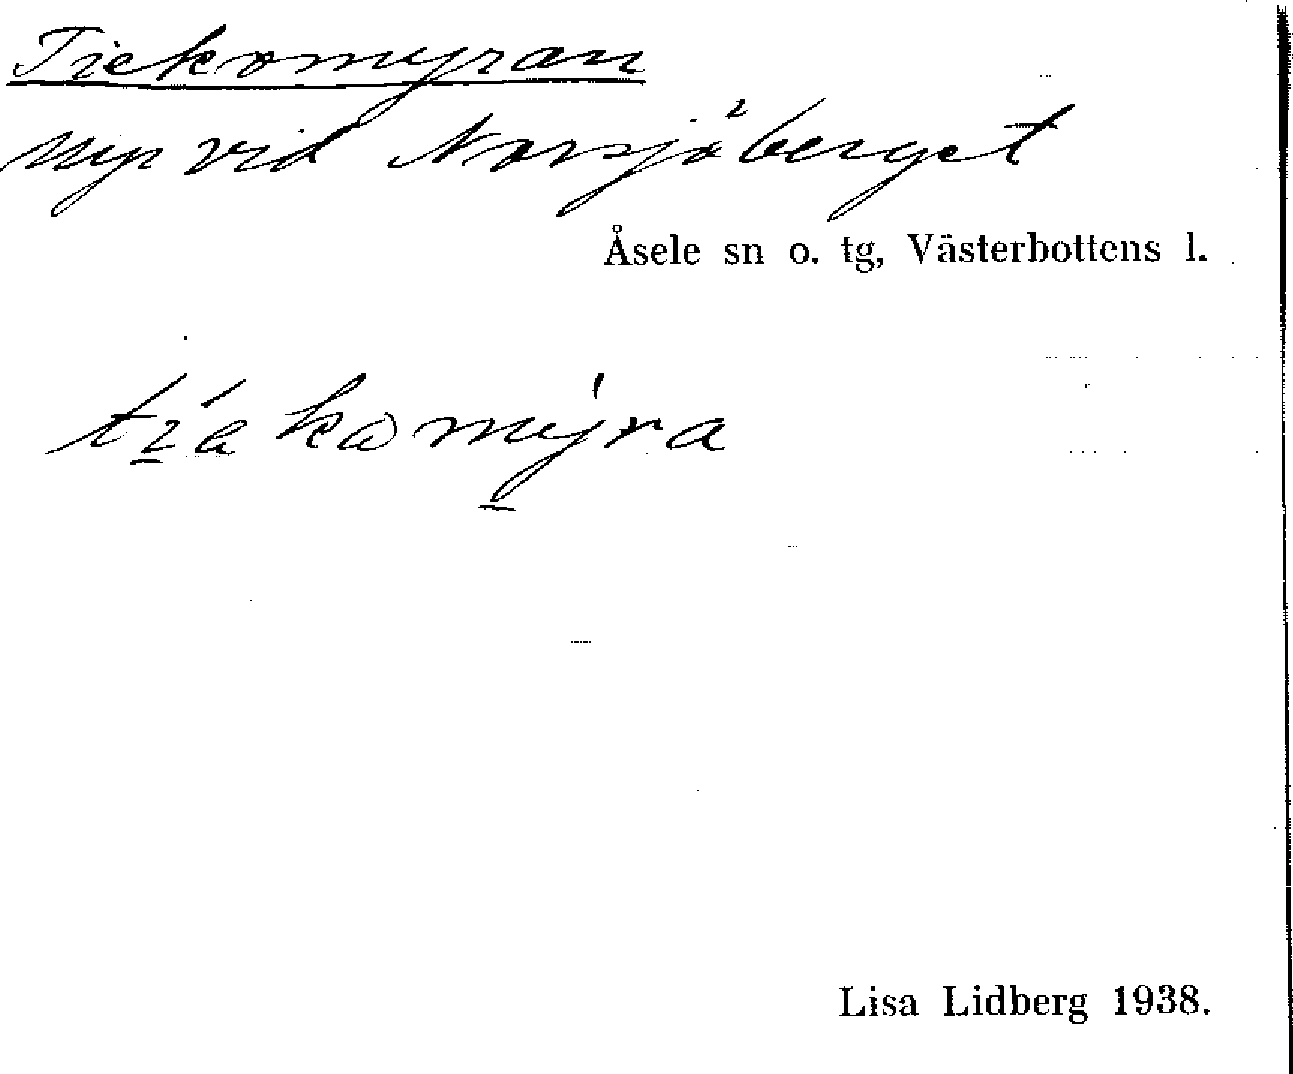 Tiekomyran
myr vid Norrsjöberget
Åsele sn o. tg, Västerbottens l.
Lisa Lidberg 1938.